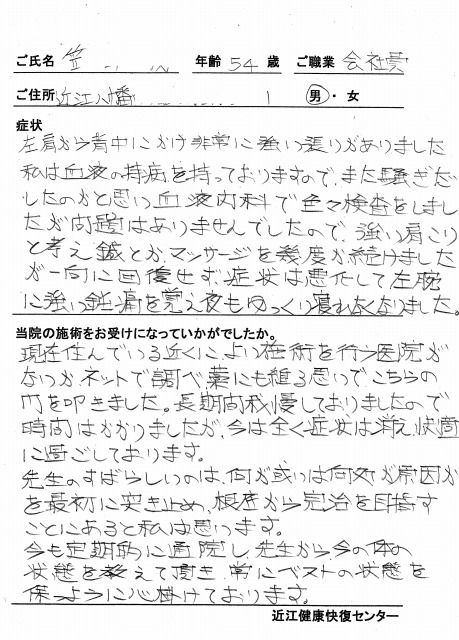 ご氏名 笠 年齢 54 歳 ご職業 会社員
ご住所 近江八幡 男・女
症状
左肩から背中にかけ非常に強い張りがありました
私は血液の持病を持っておりますので、また騒ぎだ
したのかと思い血液内科で色々検査をしまし
たが問題はありませんでしたので、強い肩こり
と考え鍼とかマッサージを幾度か続けました
が一向に回復せず、症状は悪化して左腕
に強い鈍痛を覚え夜もゆっくり寝れなくなりました。
当院の施術をお受けになっていかがでしたか。
現在住んでいる近くによい施術を行う医院が
なつかネットで調べ藁にも縋る思いで、こちらの
門を叩きました。長期間我慢しておりましたので
時間はかかりましたが、今は全く症状は消え、快適
に過ごしております。
先生のすばらしいのは、何が或いは何処が原因か
を最初に突き止め、根底から完治を目指す
ことにあると私は思います。
今も定期的に通院し、先生から今の体の
状態を教えて頂き、常にベストの状態を
保つように心掛けております。
近江健康快復センター